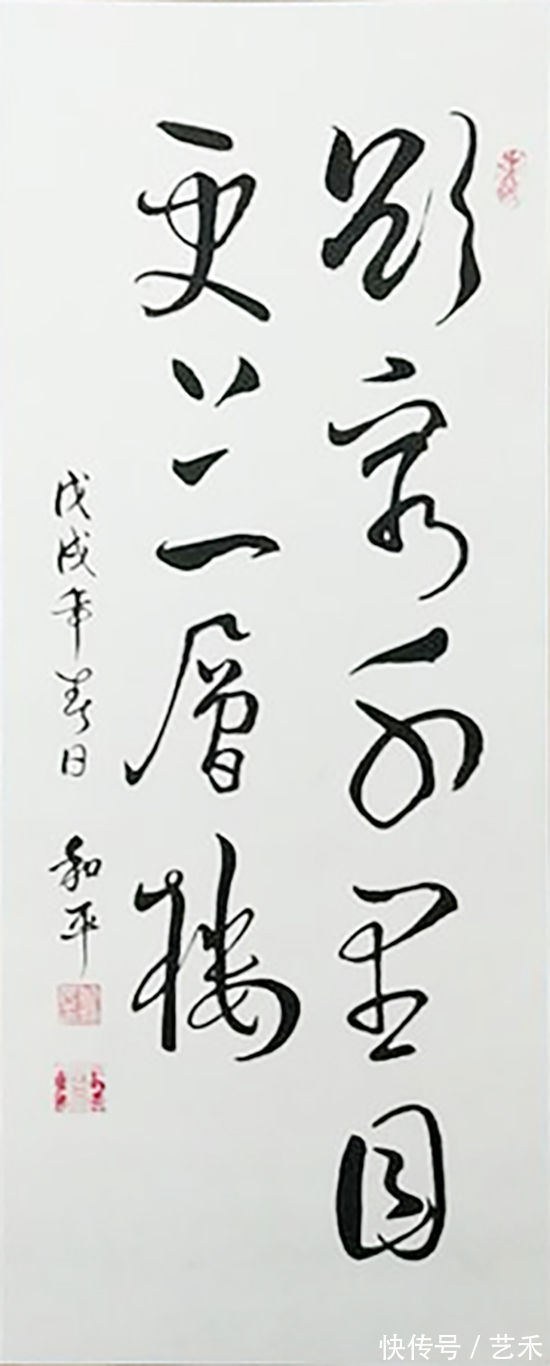 欲穷千里目
更上一层楼
戊戌年春日 和平
快传号 / 艺禾